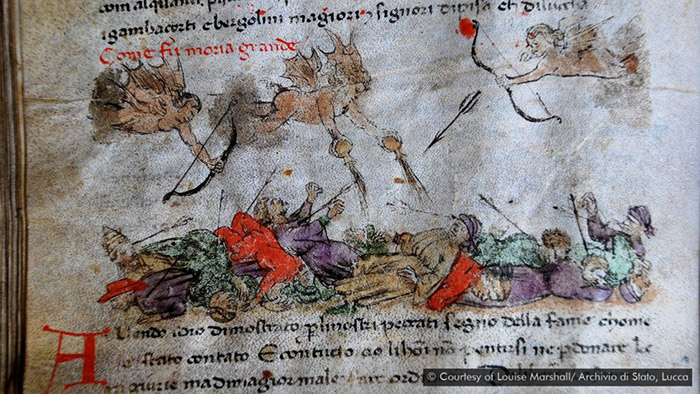 com alquanti
i gambacorti e bergolini magiori signori di pisa et di lucha
Come fu moria grande
Avendo idio dimostrato p li nostri peccati segno della fame chome
e stato contato E contucto cio li homi no pentirsi ne p donare le
iniurie ma di magior male fare
© Courtesy of Louise Marshall/ Archivio di Stato, Lucca